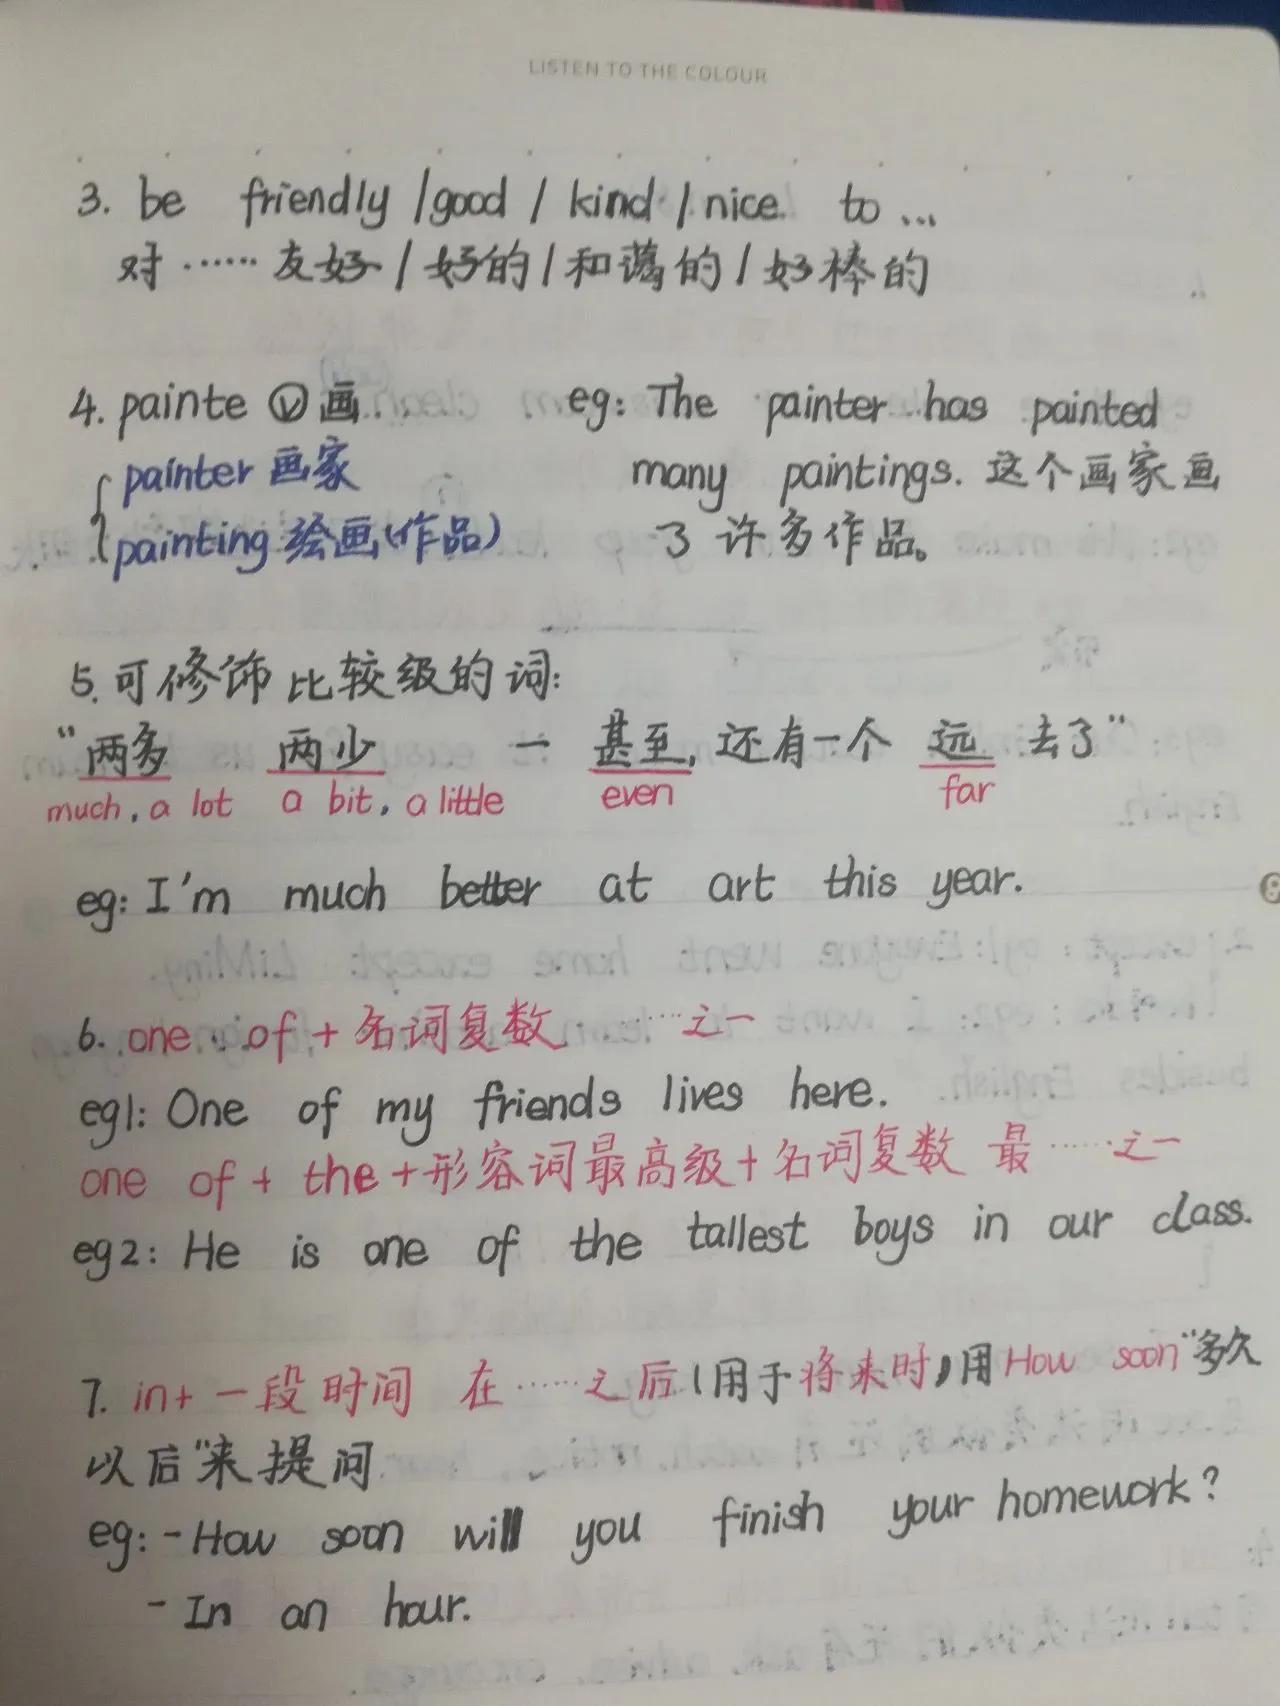 LISTEN TO THE COLOUR
3. be friendly / good / kind / nice to ...
对 ······ 友好 / 好的 / 和蔼的 / 好棒的
4. painte ⓥ 画 eg: The painter has painted
painter 画家 many paintings. 这个画家画
painting 绘画(作品) 了许多作品。
5. 可修饰比较级的词:
“两多 两少 一 甚至, 还有一个 远 去了”
much, a lot a bit, a little even far
eg: I'm much better at art this year.
6. one of + 名词复数 ······之一
eg1: One of my friends lives here.
one of + the + 形容词最高级 + 名词复数 最 ······之一
eg2: He is one of the tallest boys in our class.
7. in + 一段时间 在 ······ 之后 (用于将来时) 用 How soon “多久
以后”来提问
eg: - How soon will you finish your homework?
- In an hour.